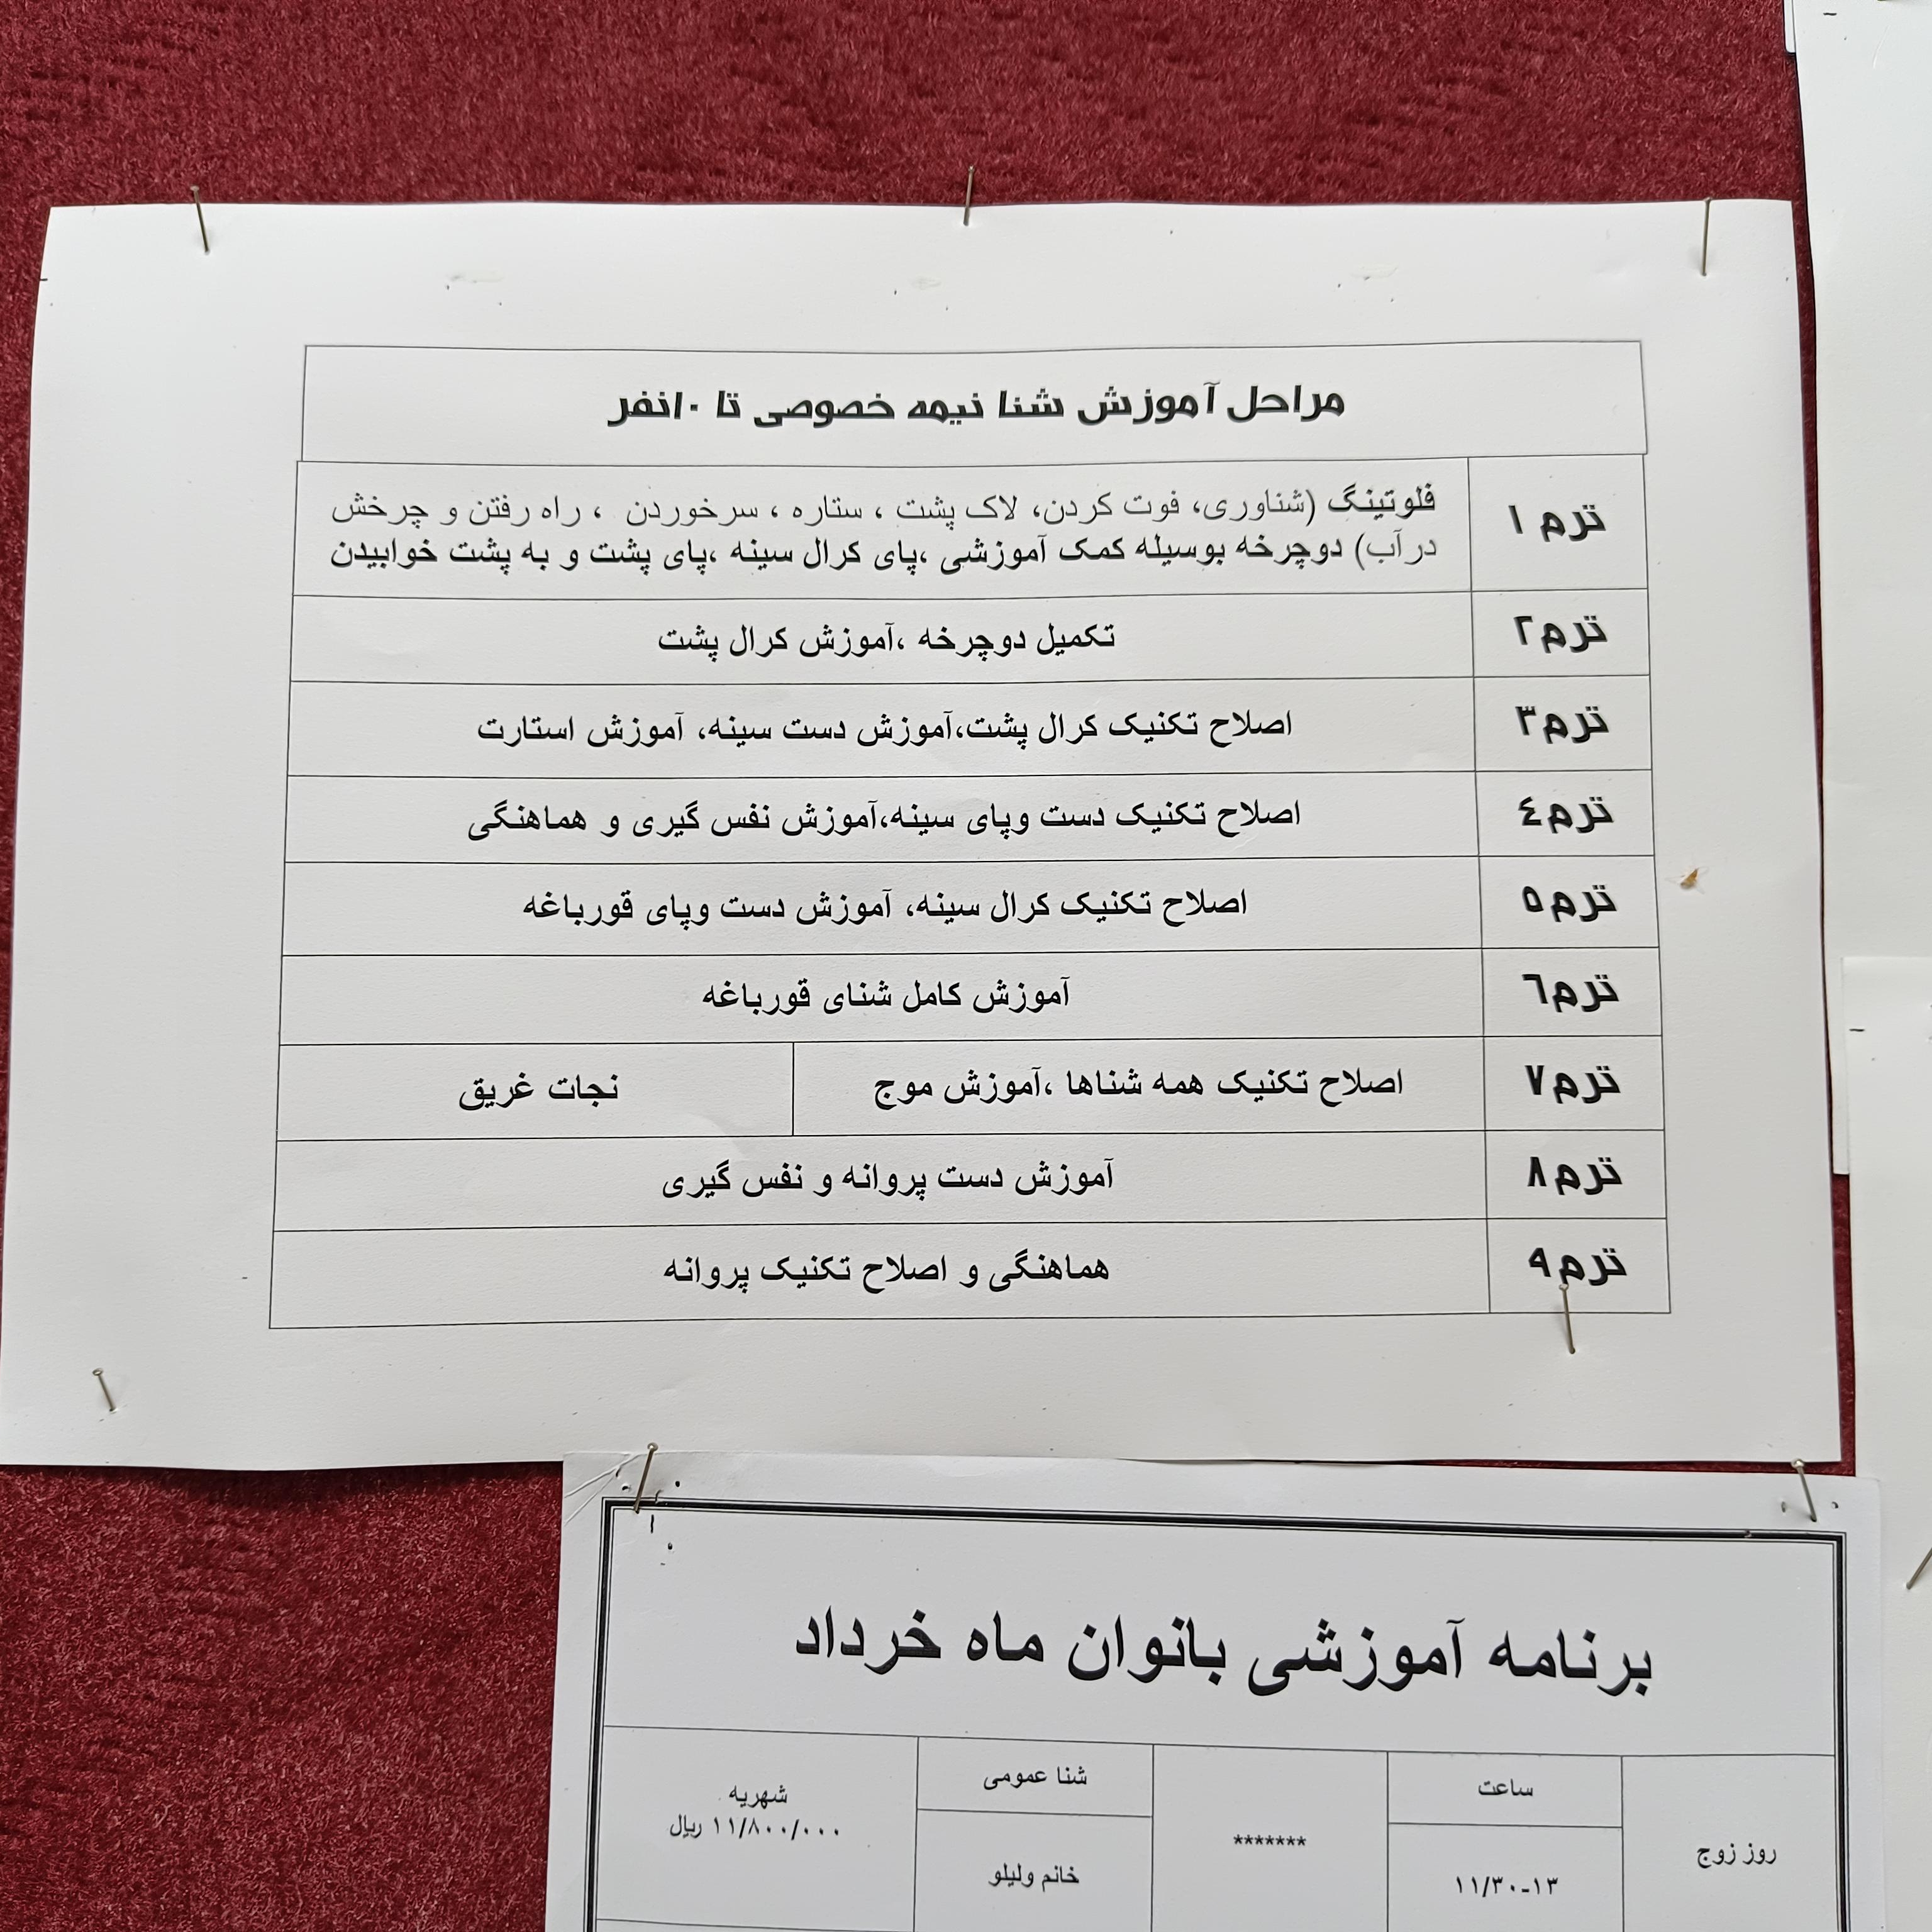 مراحل آموزش شنا نیمه خصوصی تا ۱۰نفر
ترم ۱
فلوتینگ (شناوری، فوت کردن، لاک پشت ، ستاره ، سرخوردن ، راه رفتن و چرخش
درآب) دوچرخه بوسیله کمک آموزشی ،پای کرال سینه ،پای پشت و به پشت خوابیدن
ترم۲
تکمیل دوچرخه ،آموزش کرال پشت
ترم۳
اصلاح تکنیک کرال پشت،آموزش دست سینه، آموزش استارت
ترم٤
اصلاح تکنیک دست وپای سینه،آموزش نفس گیری و هماهنگی
ترم۵
اصلاح تکنیک کرال سینه، آموزش دست وپای قورباغه
ترم٦
آموزش کامل شنای قورباغه
ترم۷
اصلاح تکنیک همه شناها ،آموزش موج
نجات غریق
ترم۸
آموزش دست پروانه و نفس گیری
ترم۹
هماهنگی و اصلاح تکنیک پروانه
برنامه آموزشی بانوان ماه خرداد
روز زوج
ساعت
۱۱/۳۰-۱۳
*******
شنا عمومی
خانم ولیلو
شهریه
۱۱/۸۰۰/۰۰۰ ریال